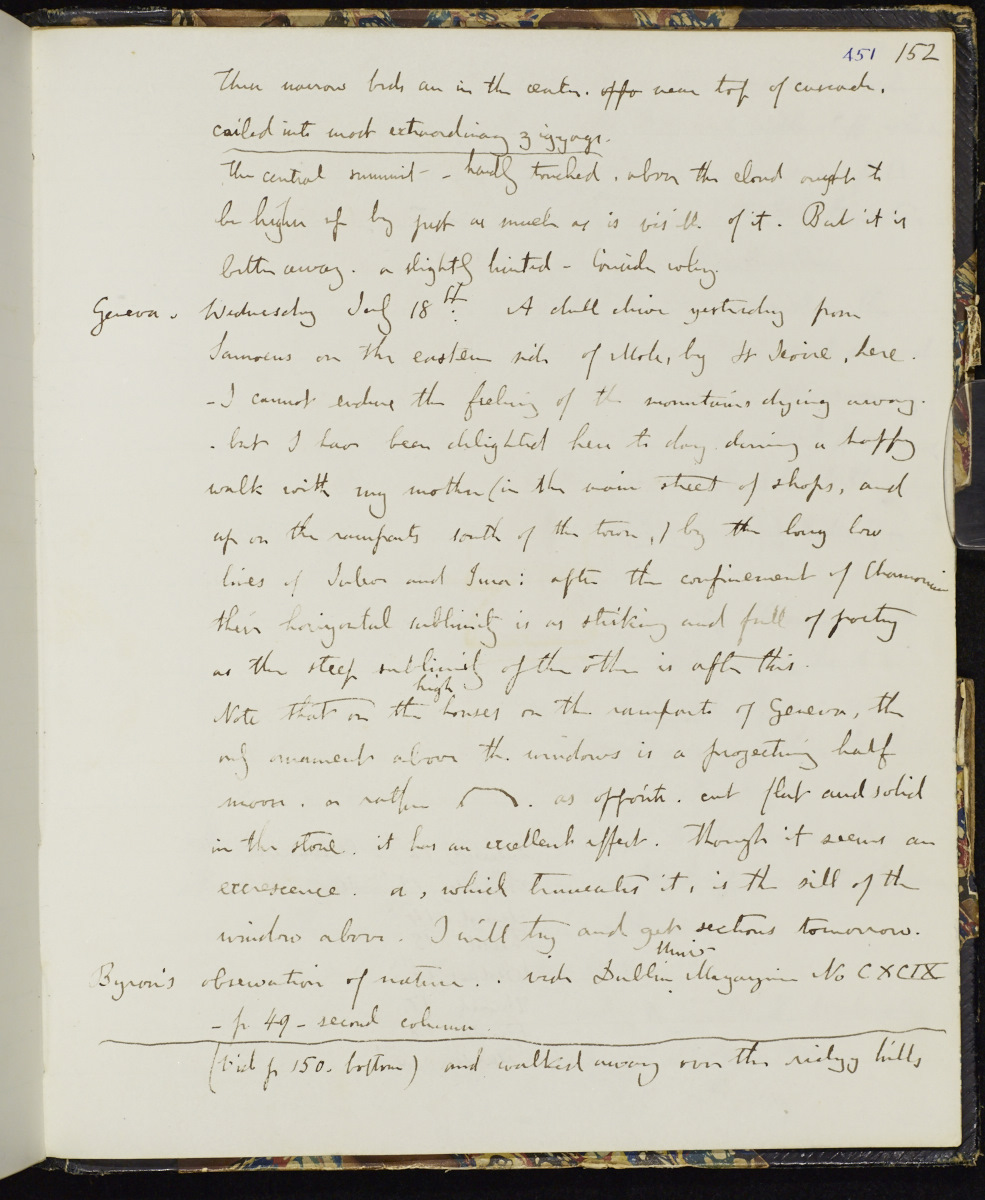 151 152
These narrow beds are in the center. oppo near top of cascade.
coiled into most extraordinary zigzags.
The central summit - - hardly touched. above the cloud ought to
be higher up by just as much as is visible of it. But it is
better away. a slightly hinted - Consider why.
Geneva. Wednesday July 18th. A dull drive yesterday from
Samoens on the eastern side of Mole, by St Jeoire, here.
- I cannot endure the feeling of the mountains dying away.
- but I have been delighted here to day during a happy
walk with my mother (in the main street of shops, and
up on the ramparts south of the town,) by the long low
lines of Saleve and Jura: after the confinement of Chamonix
their horizontal sublimity is as striking and full of poetry
as the steep sublimity of the other is after this.
Note that on the high houses on the ramparts of Geneva, the
only ornament above the windows is a projecting half
moon. or rather . as opposite. cut flat and solid
in the stone. it has an excellent effect. though it seems an
excrescence. a, which truncates it, is the sill of the
window above. I will try and get sections tomorrow.
Byron's observation of nature. . vide Dublin Univ Magazine No CXCIX
- p 49 - second column.
(vid p 150. bottom) and walked away over the ridgy hills